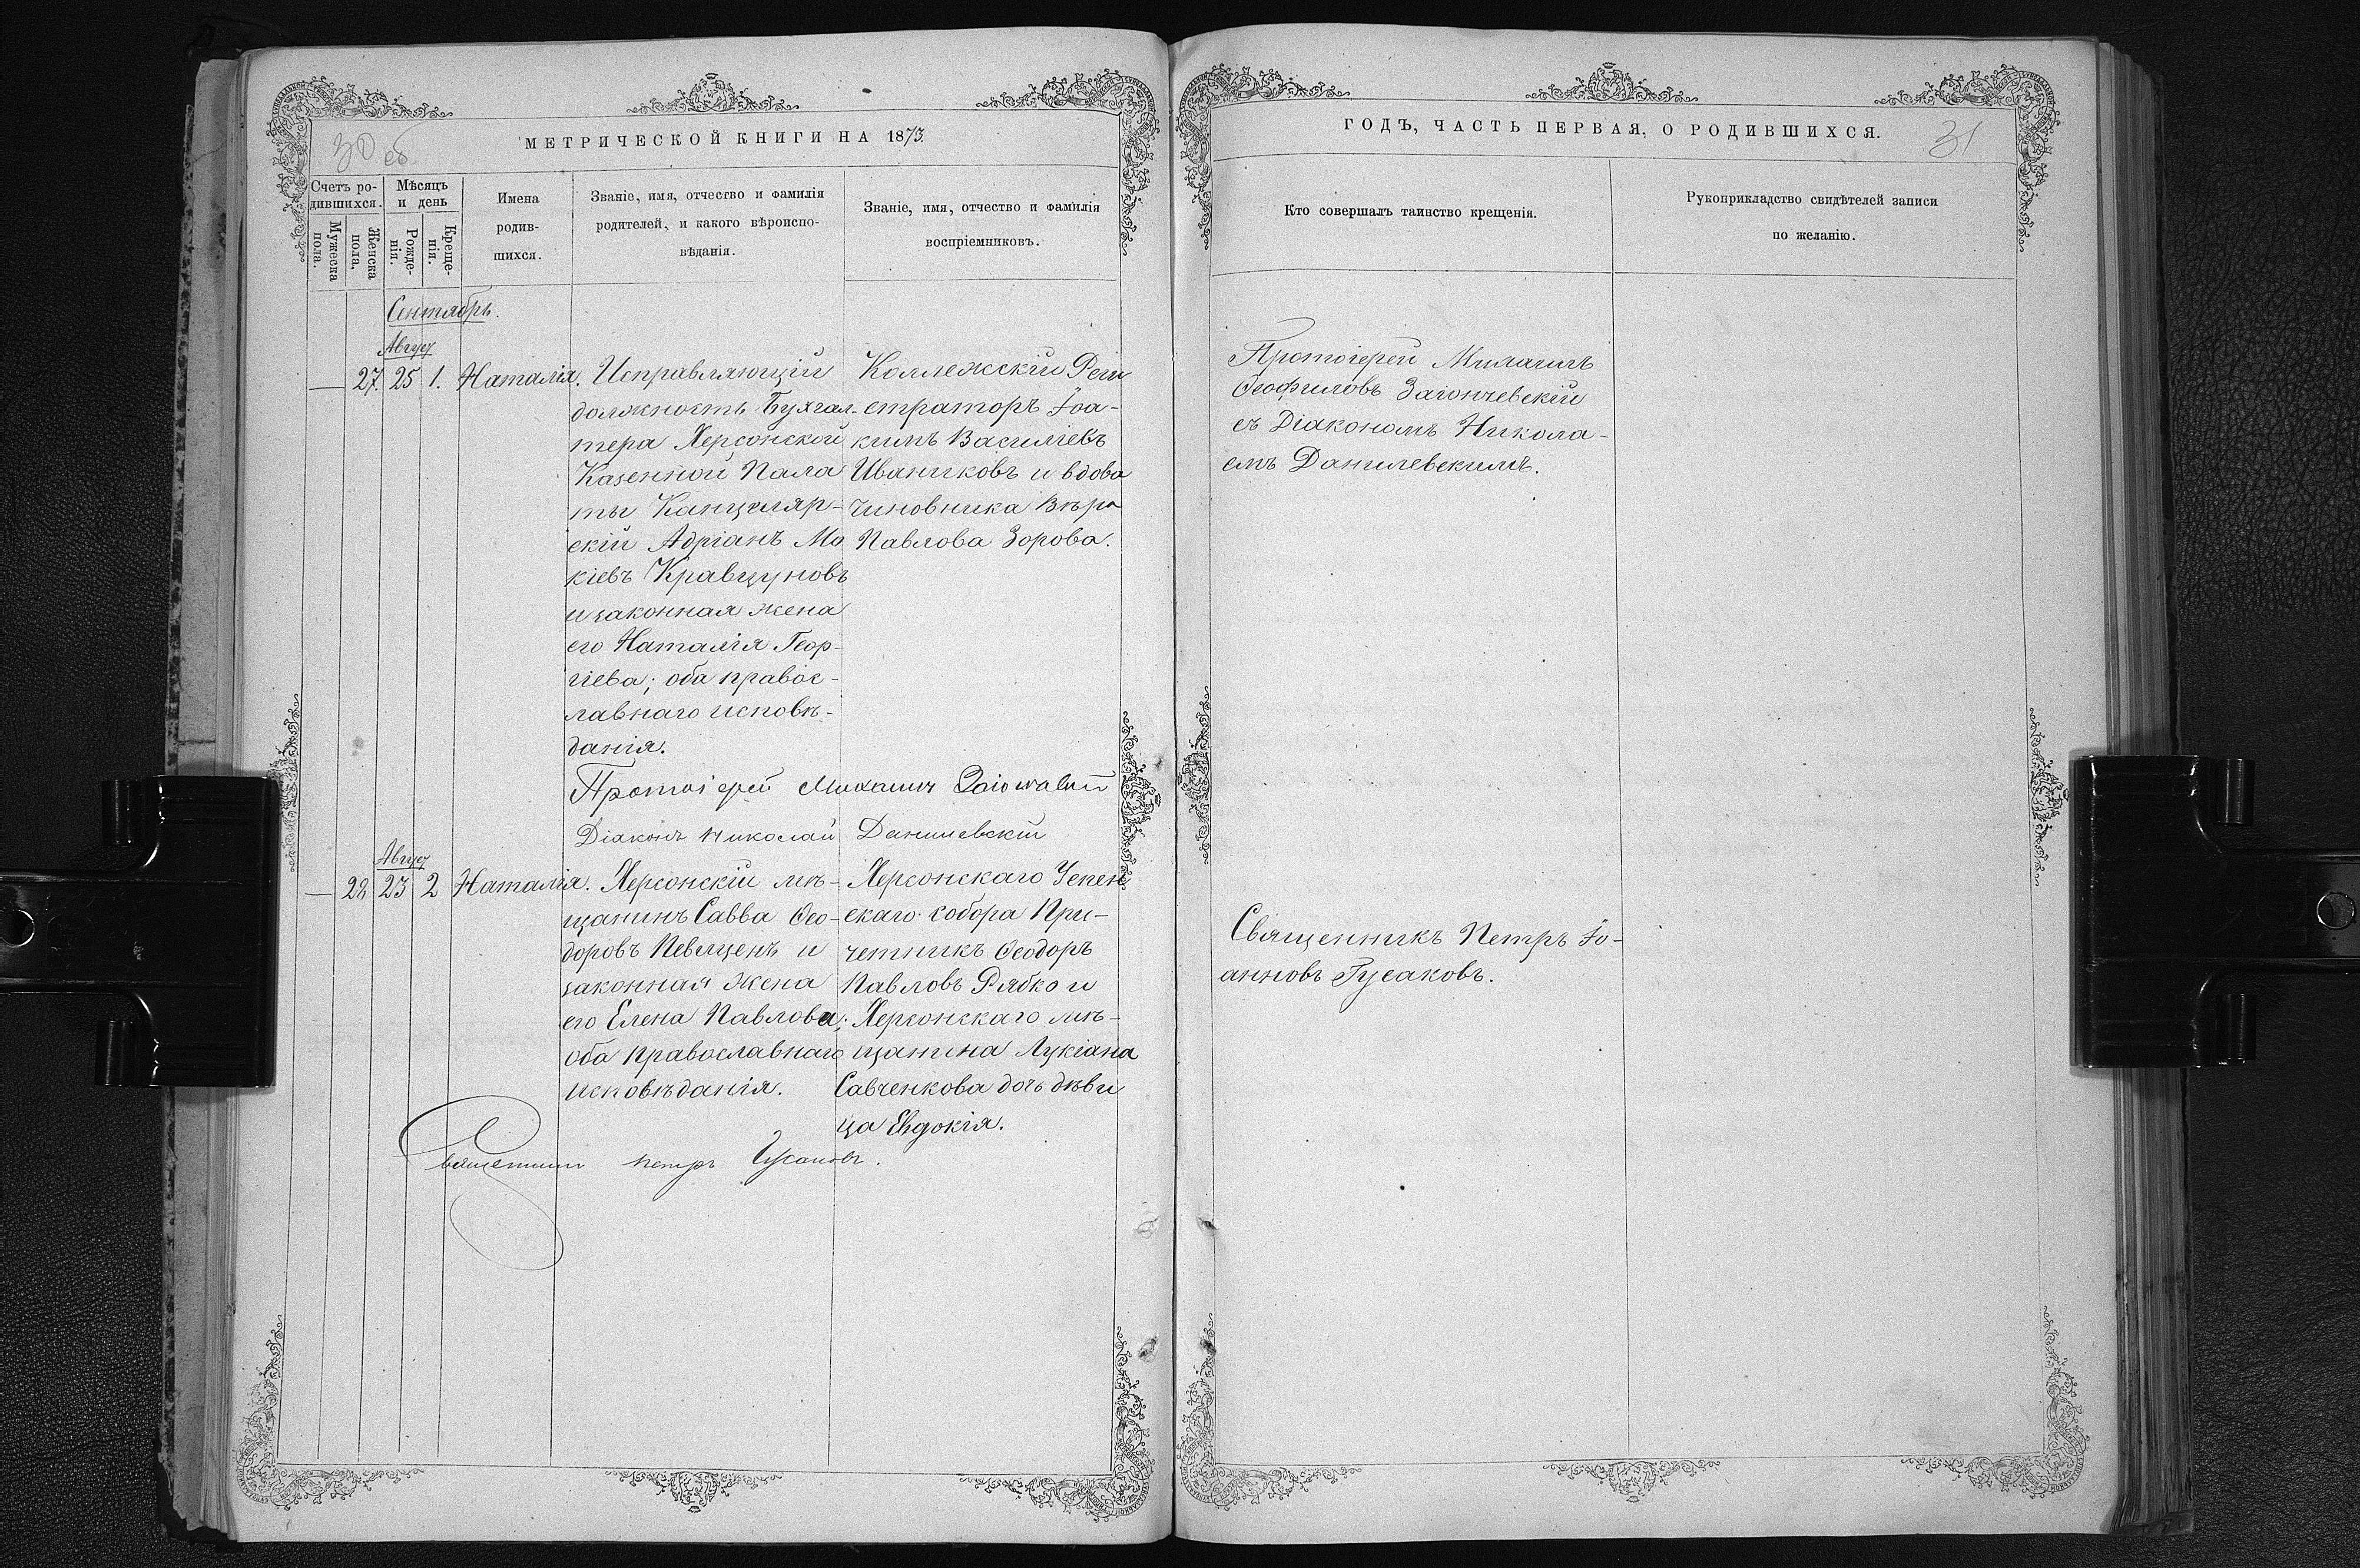 30 об
МЕТРИЧЕСКОЙ КНИГИ НА 1873.
Счетъ ро-
дившихся.
Мужеска
пола.
Женска
пола.
Мѣсяцъ
и день
Рожде-
нія.
Креще-
нія.
Имена
родив-
шихся.
Званіе, имя, отчество и фамилія
родителей, и какого вѣроиспо-
вѣданія.
Званіе, имя, отчество и фамилія
воспріемниковъ.
Сентябрь.
Август
— 27. 25 1. Наталія.
Исправляющій
должность Бухгал-
тера Херсонской
Казенной Пала
ты Канцеляр-
скій Адріанъ Мо
кіевъ Кравцуновъ
и законная жена
его Наталія Геор-
гіева; оба правос-
лавнаго исповѣ-
данія.
Коллежскій Реги
страторъ Іоа-
кимъ Василіевъ
Иваниковъ и вдова
чиновника Вѣра
Павлова Зорова.
Протоіерей Михаилъ
Діаконъ Николай Данилевскій
Август
— 28 23 2 Наталія.
Херсонскій мѣ-
щанинъ Савва Ѳео-
доровъ Певцценъ и
законная жена
его Елена Павлова;
оба православнаго
исповѣданія.
Херсонскаго Успен
скаго собора При-
четникъ Ѳеодоръ
Павловъ Рябко и
Херсонскаго мѣ-
щанина Лукіана
Савченкова дочь дѣви
ца Евдокія.
Священникъ Петръ Гусаковъ.
ГОДЪ, ЧАСТЬ ПЕРВАЯ, О РОДИВШИХСЯ.
31
Кто совершалъ таинство крещенія.
Рукоприкладство свидѣтелей записи
по желанію.
Протоіерей Михаилъ
Ѳеофиловъ Загончевскій
съ Діакономъ Никола-
емъ Данилевскимъ.
Священникъ Петръ Іо-
анновъ Гусаковъ.